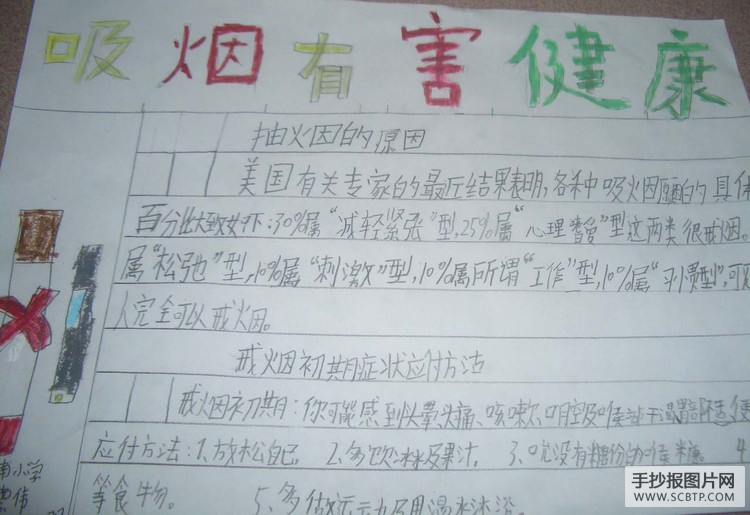 吸烟有害健康
抽烟的原因
美国有关专家的最近结果表明,各种吸烟原因的具体
百分比大致如下:30%属“减轻紧张”型,25%属“心理 ”型这两类很 戒烟。
属“松弛”型,10%属“刺激”型,10%属所谓“工作”型,10%属“习惯型”,可见
人完全可以戒烟。
戒烟初期症状应付方法
戒烟初期:你可能感到头晕、头痛、咳嗽、口腔及喉
应付方法:1、放松自己。 2、多饮水及果汁。 3、吃没有糖份的喉糖。 4
等食物。 5、多做运动及用温水沐浴。
南小学
手抄报图片网
WWW.SCBTP.COM